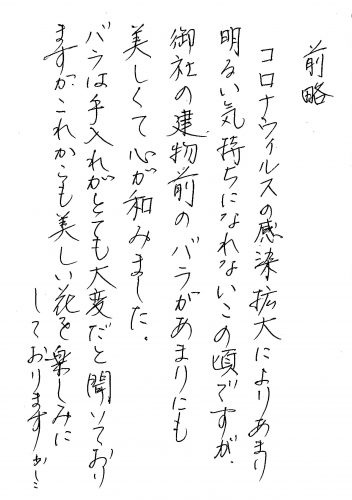 前略
コロナウィルスの感染拡大によりあまり
明るい気持ちになれないこの頃ですが、
御社の建物前のバラがあまりにも
美しくて心が和みました。
バラは手入れがとても大変だと聞いており
ますがこれからも美しい花を楽しみに
しております かしこ